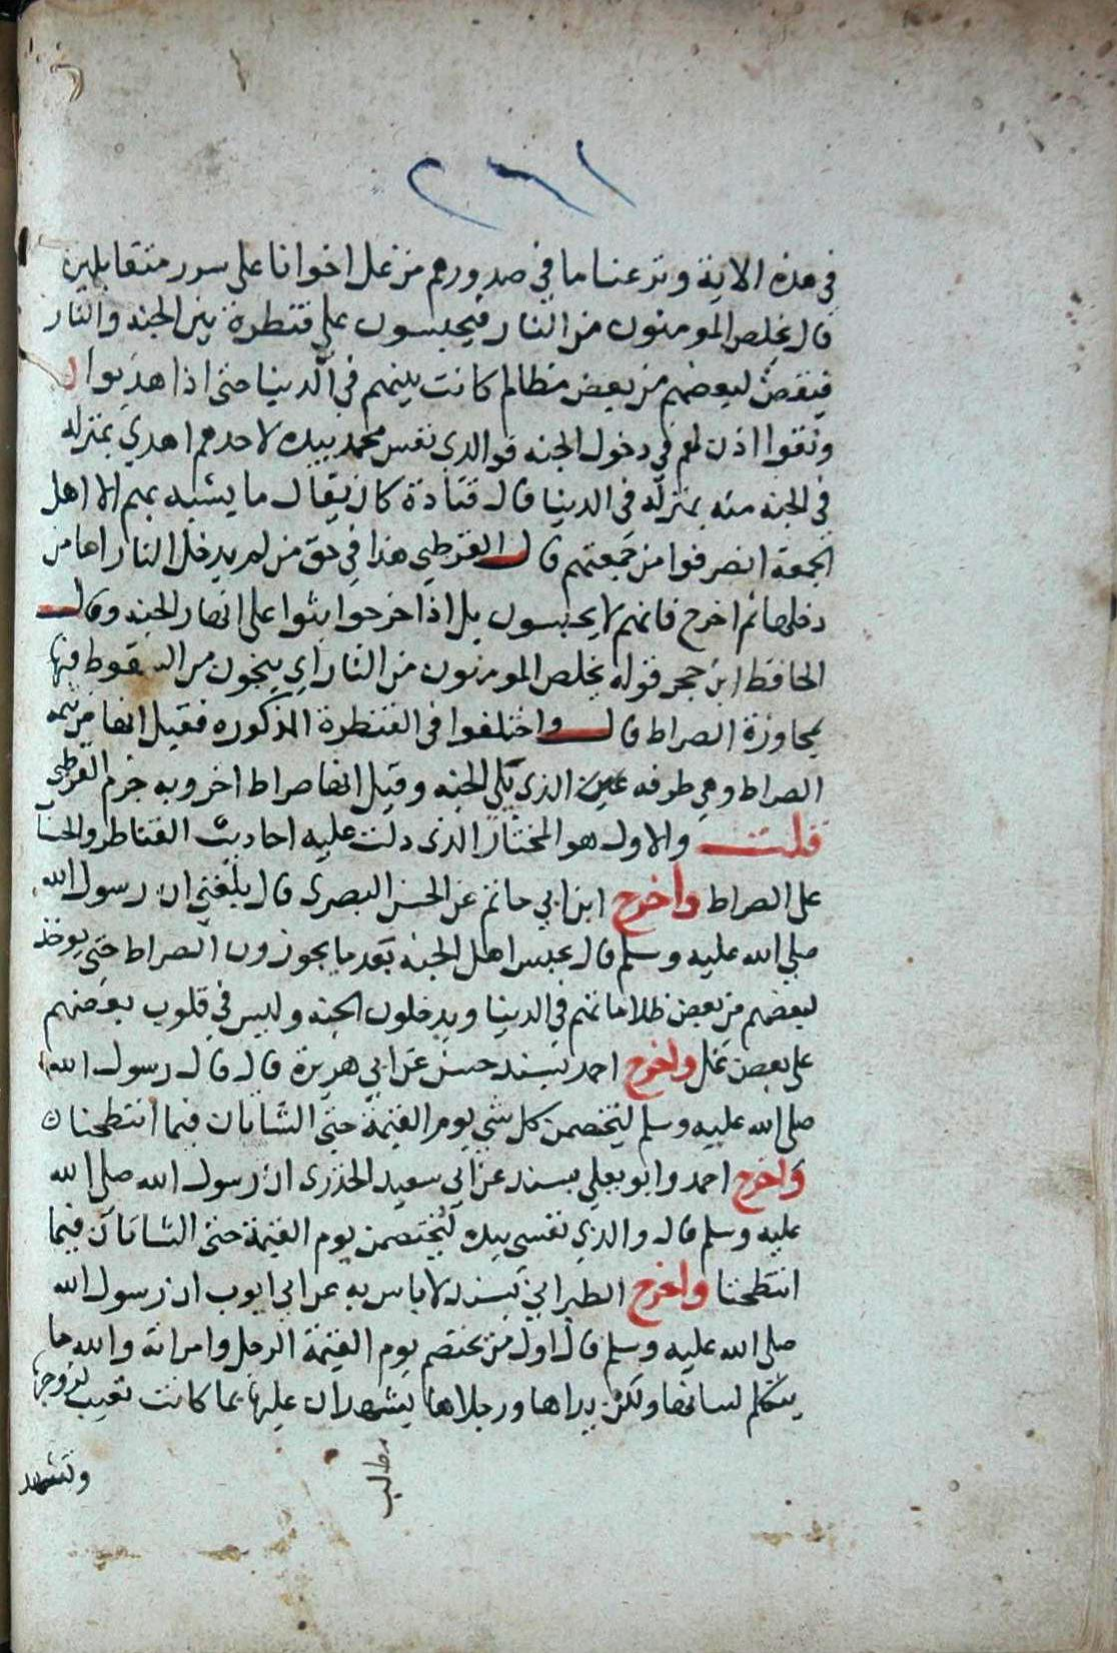 ٢٦١
في هذه الاية ونزعنا ما في صدورهم من غل اخوانا على سرر متقابلين
قال يخلص المومنون من النار فيحبسون على قنطرة بين الجنة والنار
فيقص لبعضهم من بعض مظالم كانت بينهم في الدنيا حتى اذا هذبوا
ونقوا اذن لهم في دخول الجنه فوالذي نفس محمد بيده لاحدهم اهدي بمنزله
في الجنه منه بمنزله في الدنيا قال قتادة كان يقال ما يشبه بهم الا اهل
الجمعة انصرفوا من جمعتهم قال القرطبي هذا في حق من لم يدخل النار اما من
دخلها ثم اخرج فانهم لا يحبسون بل اذا اخرجوا بثوا على انهار الجنه وقال
الحافظ ابن حجر قوله يخلص المومنون من النار اي ينجون من السقوط فيها
بمجاوزة الصراط قال واختلفوا في القنطرة المذكوره فقيل انها من تتمة
الصراط وهي طرفه الذي يلي الجنه وقيل انها صراط اخر وبه جزم القرطبي
قلت والاول هو المختار الذي دلت عليه احاديث القناطر والحساب
على الصراط واخرج ابن ابي حاتم عن الحسن البصري قال بلغني ان رسول الله
صلى الله عليه وسلم قال يحبس اهل الجنه بعد ما يجوزون الصراط حتى يوخذ
لبعضهم من بعض ظلاماتهم في الدنيا ويدخلون الجنه وليس في قلوب بعضهم
على بعض غل واخرج احمد بسند حسن عن ابي هريرة قال قال رسول الله
صلى الله عليه وسلم ليختصمن كل شي يوم القيمة حتى الشاتان فيما انتطحتا
واخرج احمد وابو يعلي بسند عن ابي سعيد الخذري ان رسول الله صلى الله
عليه وسلم قال والذي نفسي بيده ليختصمن يوم القيمة حتى الشاتان فيما
انتطحتا واخرج الطبراني بسند لا باس به عن ابي ايوب ان رسول الله
صلى الله عليه وسلم قال اول من يختصم يوم القيمة الرجل وامراته والله ما
يتكلم لسانها ولكن يداها ورجلاها يشهدان عليها بما كانت تغيب لزوجها
وتشهد
مطالب